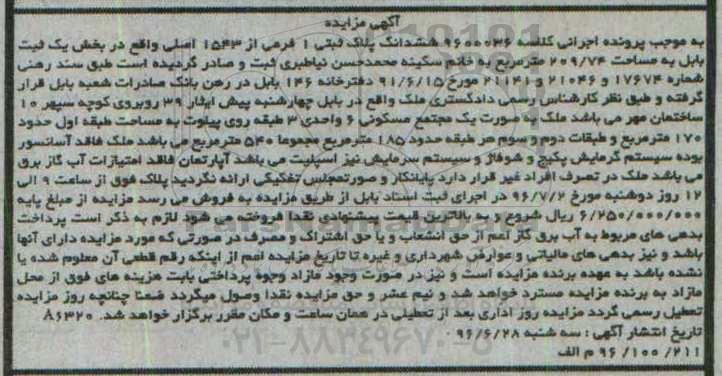 آگهی مزایده
به موجب پرونده اجرائی کلاسه ۹۶۰۰۰۳۶ ششدانگ پلاک ثبتی ۱ فرعی از ۱۵۴۳ اصلی واقع در بخش یک ثبت
بابل به مساحت ۲۰۹/۷۴ مترمربع به خانم سکینه محمدحسن نیاطبری ثبت و صادر گردیده است طبق سند رهنی
شماره ۱۷۶۷۴ و ۲۱۰۴۶ و ۲۱۱۴۱ مورخ ۹۱/۶/۱۵ دفترخانه ۱۴۶ بابل در رهن بانک صادرات شعبه بابل قرار
گرفته و طبق نظر کارشناس رسمی دادگستری ملک واقع در بابل چهارشنبه پیش ایثار ۳۹ روبروی کوچه سپهر ۱۰
ساختمان مهر می باشد ملک به صورت یک مجتمع مسکونی ۶ واحدی ۳ طبقه روی پیلوت به مساحت طبقه اول حدود
۱۷۰ مترمربع و طبقات دوم و سوم هر طبقه حدود ۱۸۵ مترمربع مجموعا ۵۴۰ مترمربع می باشد ملک فاقد آسانسور
بوده سیستم گرمایش پکیج و شوفاژ و سیستم سرمایش نیز اسپلیت می باشد آپارتمان فاقد امتیازات آب گاز برق
می باشد ملک در تصرف افراد غیر قرار دارد پایانکار و صورتمجلس تفکیکی ارائه نگردید پلاک فوق از ساعت ۹ الی
۱۲ روز دوشنبه مورخ ۹۶/۷/۲ در اجرای ثبت اسناد بابل از طریق مزایده به فروش می رسد مزایده از مبلغ پایه
۶/۲۵۰/۰۰۰/۰۰۰ ریال شروع و به بالاترین قیمت پیشنهادی نقدا فروخته می شود لازم به ذکر است پرداخت
بدهی های مربوط به آب برق گاز اعم از حق انشعاب و یا حق اشتراک و مصرف در صورتی که مورد مزایده دارای آنها
باشد و نیز بدهی های مالیاتی و عوارض شهرداری و غیره تا تاریخ مزایده اعم از اینکه رقم قطعی آن معلوم شده یا
نشده باشد به عهده برنده مزایده است و نیز در صورت وجود مازاد وجوه پرداختی بابت هزینه های فوق از محل
مازاد به برنده مزایده مسترد خواهد شد و نیم عشر و حق مزایده نقدا وصول میگردد ضمنا چنانچه روز مزایده
تعطیل رسمی گردد مزایده روز اداری بعد از تعطیلی در همان ساعت و مکان مقرر برگزار خواهد شد. ۸۶۳۲۰
تاریخ انتشار آگهی : سه شنبه ۹۶/۶/۲۸
۹۶/۱۰۰/۲۱۱ م الف
۰۲۱-۸۸۳۴۹۶۷۰-۵